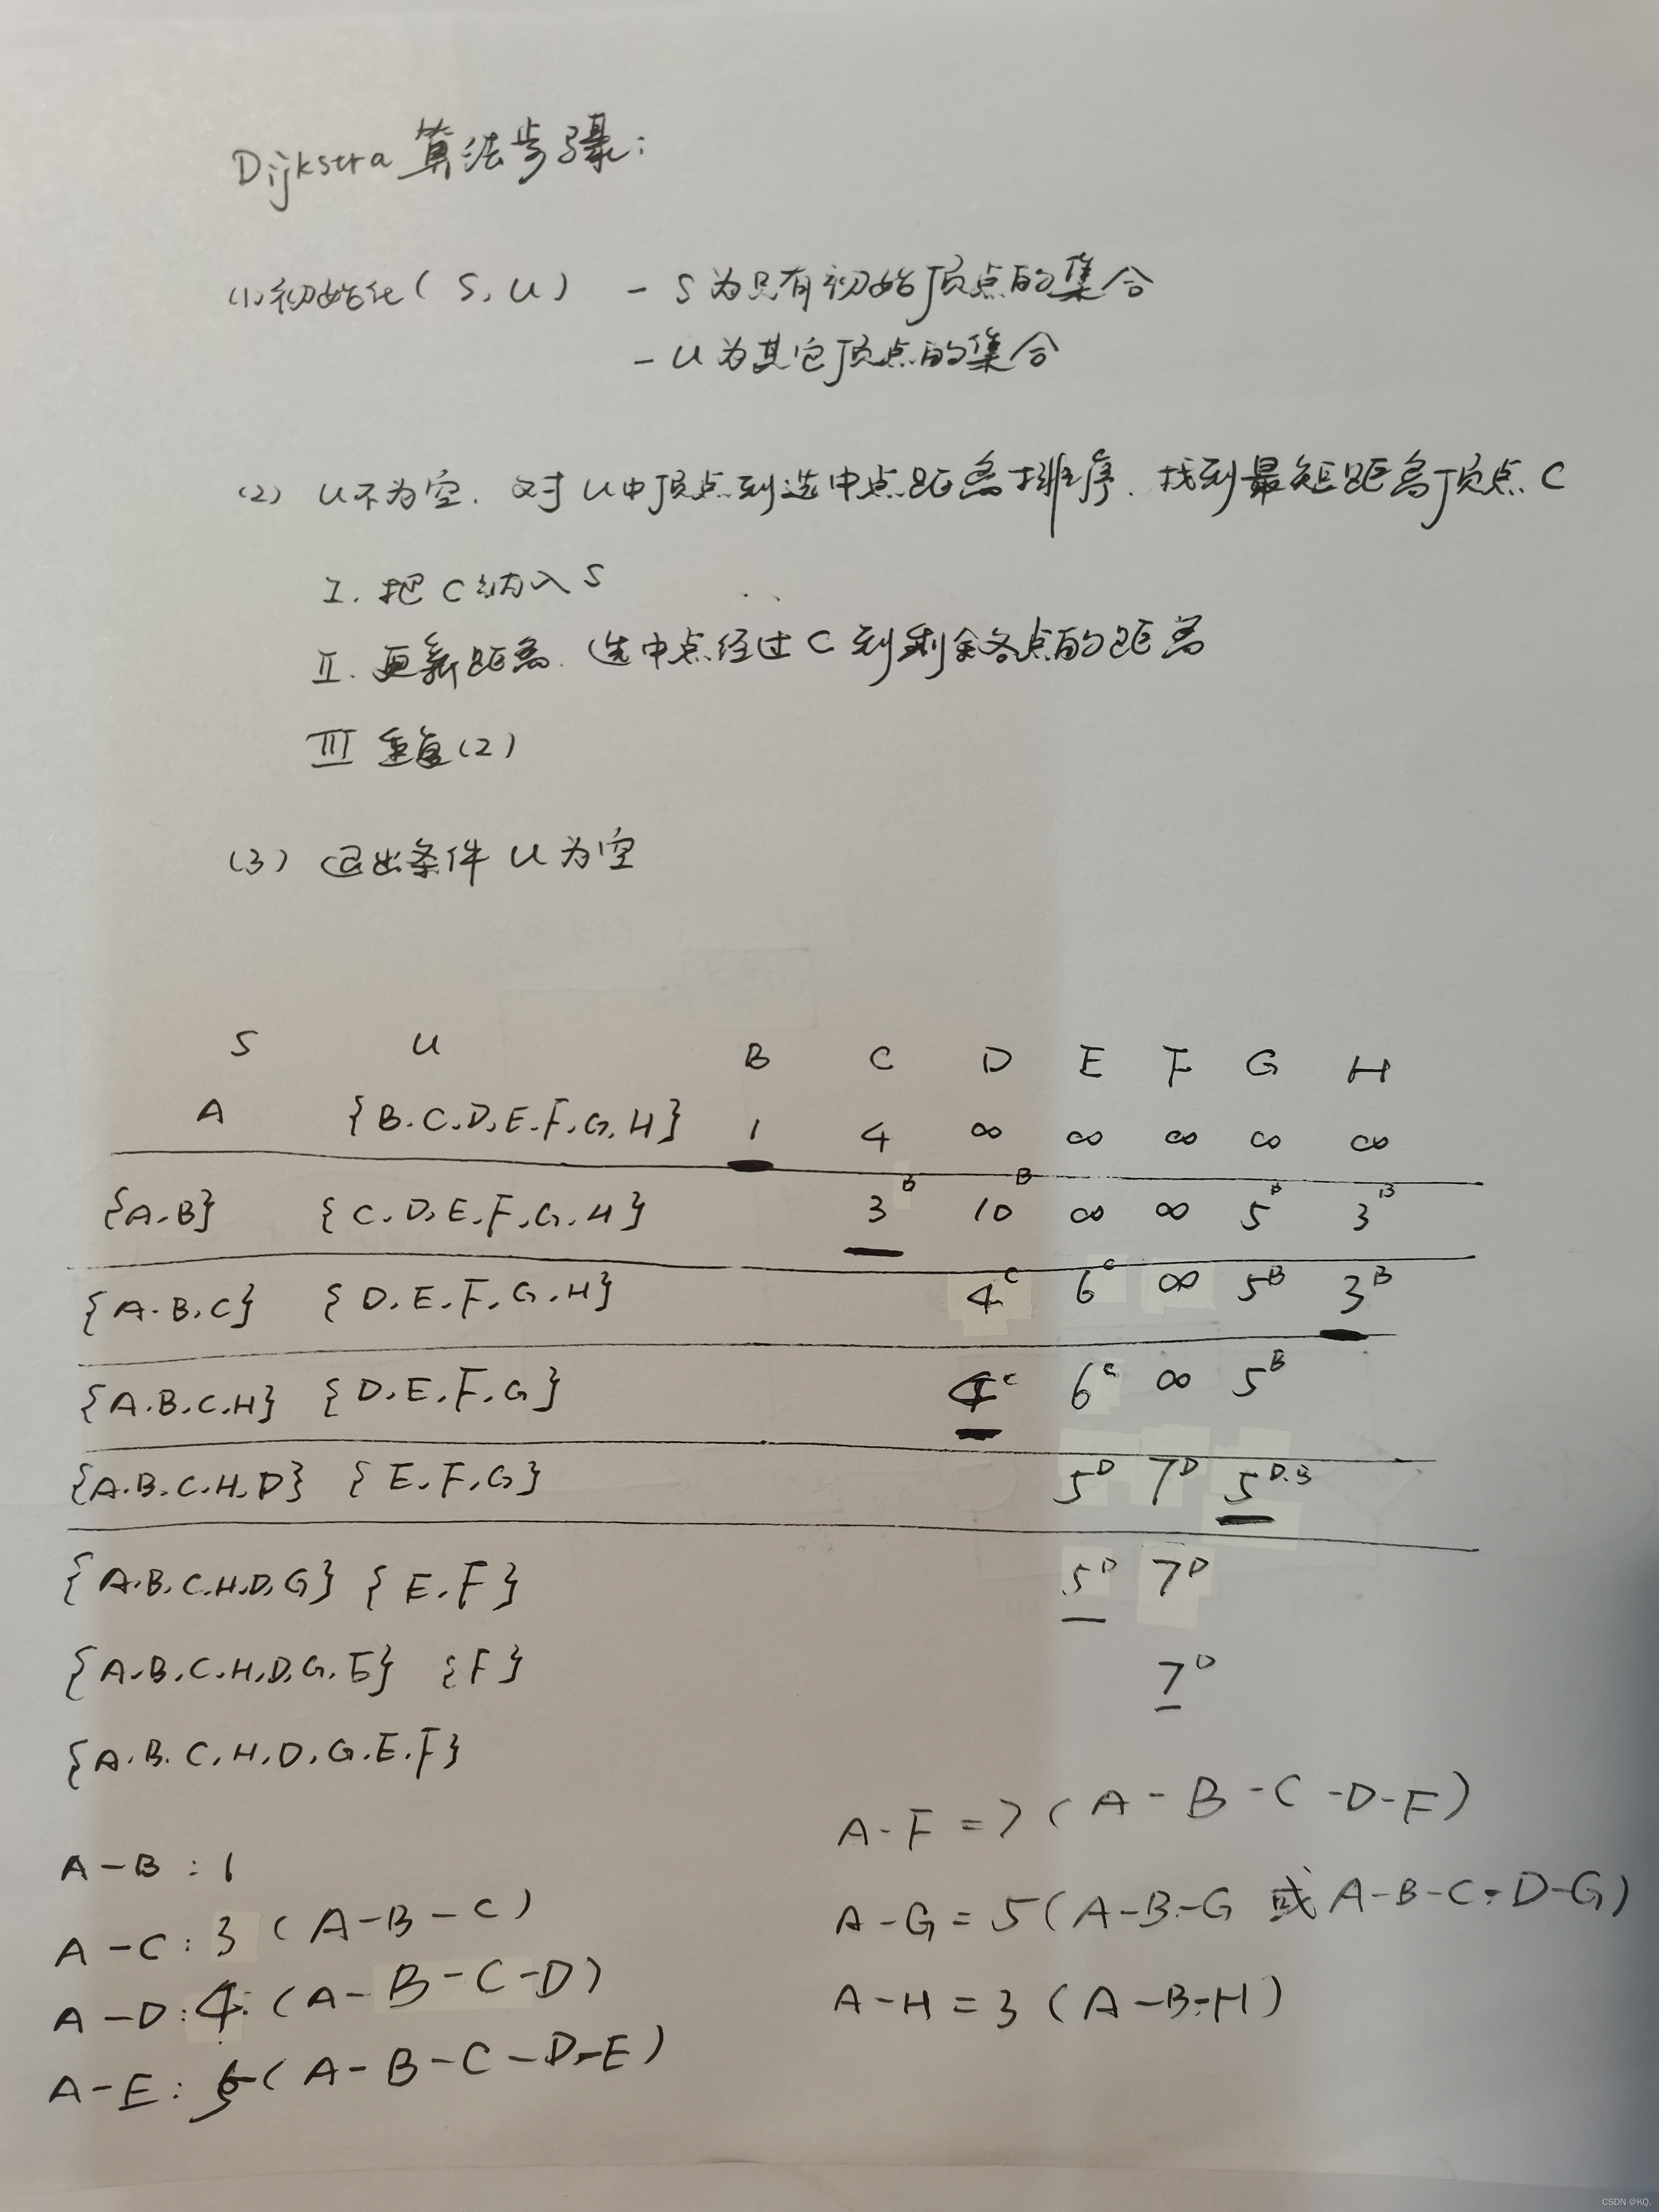 Dijkstra 算法步骤:
(1) 初始化( S, U ) - S 为只有初始顶点的集合
- U 为其它顶点的集合
(2) U不为空. 对 U中顶点到选中点距离排序. 找到最短距离顶点 C
I. 把 C 纳入 S
II. 更新距离. 选中点经过 C 到剩余各点的距离
III 重复(2)
(3) 退出条件 U 为空
S U B C D E F G H
A {B.C.D.E.F.G.H} 1 4 ∞ ∞ ∞ ∞ ∞
{A.B} {C.D.E.F.G.H} 3^B 10^B ∞ ∞ 5^B 3^B
{A.B.C} {D.E.F.G.H} 4^C 6^C ∞ 5^B 3^B
{A.B.C.H} {D.E.F.G} 4^C 6^C ∞ 5^B
{A.B.C.H.D} {E.F.G} 5^D 7^D 5^D.B
{A.B.C.H.D.G} {E.F} 5^D 7^D
{A.B.C.H.D.G.E} {F} 7^D
{A.B.C.H.D.G.E.F}
A-B : 1
A-C : 3 (A-B-C)
A-D : 4. (A-B-C-D)
A-E : 5 (A-B-C-D-E)
A-F = 7 (A-B-C-D-F)
A-G = 5 (A-B-G 或 A-B-C-D-G)
A-H = 3 (A-B-H)
CSDN @KQ.